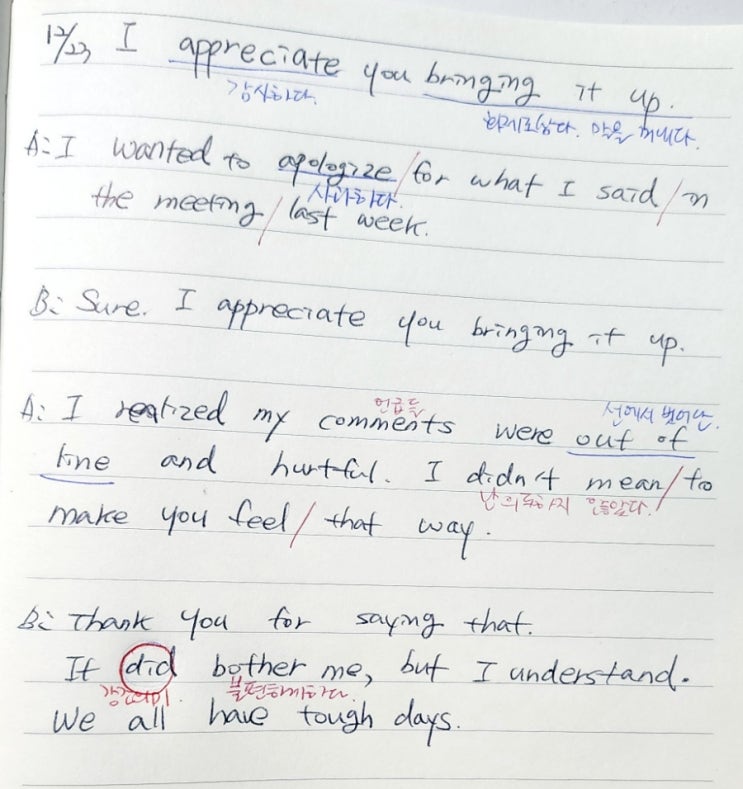 12/23 I appreciate you bringing it up.
감사하다.
화제로삼다. 말을 꺼내다.
A: I wanted to apologize/for what I said/in
사과하다.
the meeting/last week.
B: Sure. I appreciate you bringing it up.
언급들
선에서 벗어난
A: I realized my comments were out of
line and hurtful. I didn't mean/to
난 의도하지 않았다.
make you feel/that way.
B: Thank you for saying that.
It did bother me, but I understand.
강조의미. 불편하게하다
We all have tough days.